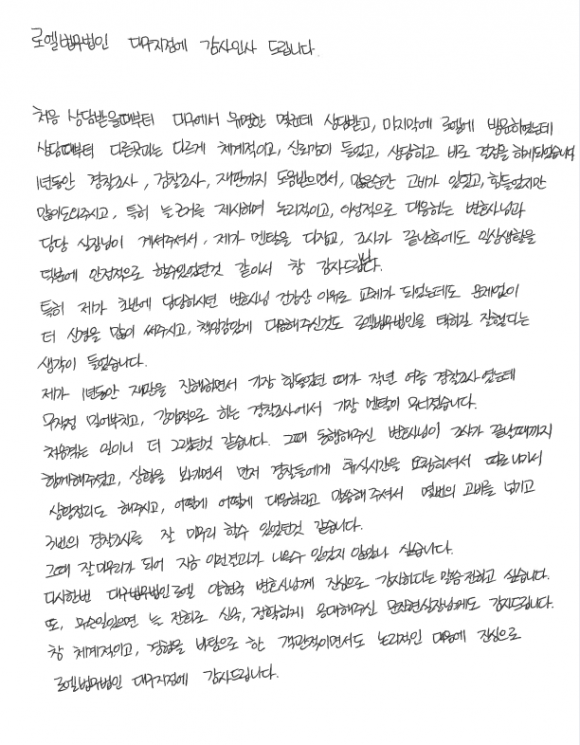 로엘법무법인 대구지점에 감사인사 드립니다.
처음 상담받을때부터 대구에서 유명한 몇군데 상담받고, 마지막에 로엘에 방문하였는데
상담때부터 다른곳과는 다르게 체계적이고, 신뢰감이 들었고, 상담하고 바로 결정을 하게되었습니다
1년동안 경찰조사, 검찰조사, 재판까지 도움받으면서, 많은순간 고비가 있었고, 힘들었지만
많이도와주시고, 특히 늘 근거를 제시하며 논리적이고, 이성적으로 대응하는 변호사님과
담당 실장님이 계셔주셔서, 제가 멘탈을 다잡고, 조사가 끝난후에도 일상생활을
덕분에 안정적으로 할수있었던것 같아서 참 감사드립니다.
특히 제가 초반에 담당하시던 변호사님 건강상 이유로 교체가 되었는데도 문제없이
더 신경을 많이 써주시고, 책임감있게 대응해주신것도 로엘법무법인을 택하길 잘했다는
생각이 들었습니다.
제가 1년동안 재판을 진행하면서 가장 힘들었던 때가 작년 여름 경찰조사 였는데
무작정 밀어부치고, 강압적으로 하는 경찰조사에서 가장 멘탈이 무너졌습니다.
처음겪는 일이니 더 그랬던것 같습니다. 그때 동행해주신 변호사님이 조사가 끝날때까지
함께해주셨고, 상황을 봐가면서 먼저 경찰들에게 휴식시간을 요청하셔서 따로 나가서
상황정리도 해주시고, 어떻게 어떻게 대응하라고 말씀해 주셔서 몇번의 고비를 넘기고
3번의 경찰조사를 잘 마무리 할수 있었던것 같습니다.
그때 잘 마무리가 되어 지금 이런결과가 나올수 있었지 않았나 싶습니다.
다시한번 대구법무법인로엘 양현국 변호사님께 진심으로 감사하다는 말씀 전하고 싶습니다.
또, 무슨일있으면 늘 전화로 신속, 정확하게 응대해주신 문진현실장님께도 감사드립니다.
참 체계적이고, 경험을 바탕으로 한 객관적이면서도 논리적인 대응에 진심으로
로엘법무법인 대구지점에 감사드립니다.